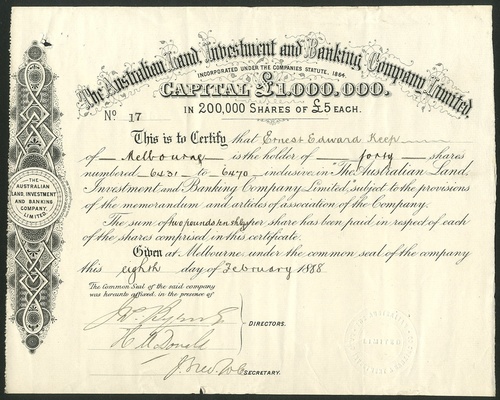 The Australian Land, Investment and Banking Company Limited.
INCORPORATED UNDER THE COMPANIES STATUTE, 1864.
CAPITAL £1,000,000.
IN 200,000 SHARES OF £5 EACH.
No 17
This is to Certify that Ernest Edward Keep
of Melbourne is the holder of forty shares
numbered 6431 to 6470 inclusive in "The Australian Land,
Investment and Banking Company Limited, subject to the provisions
of the memorandum and articles of association of the Company.
The sum of two pounds ten shgs per share has been paid in respect of each
of the shares comprised in this certificate.
Given at Melbourne under the common seal of the company
this eighth day of February 1888
The Common Seal of the said company
was hereunto affixed, in the presence of
DIRECTORS.
SECRETARY.
THE
AUSTRALIAN
LAND, INVESTMENT
AND BANKING
COMPANY
LIMITED.
LIMITED